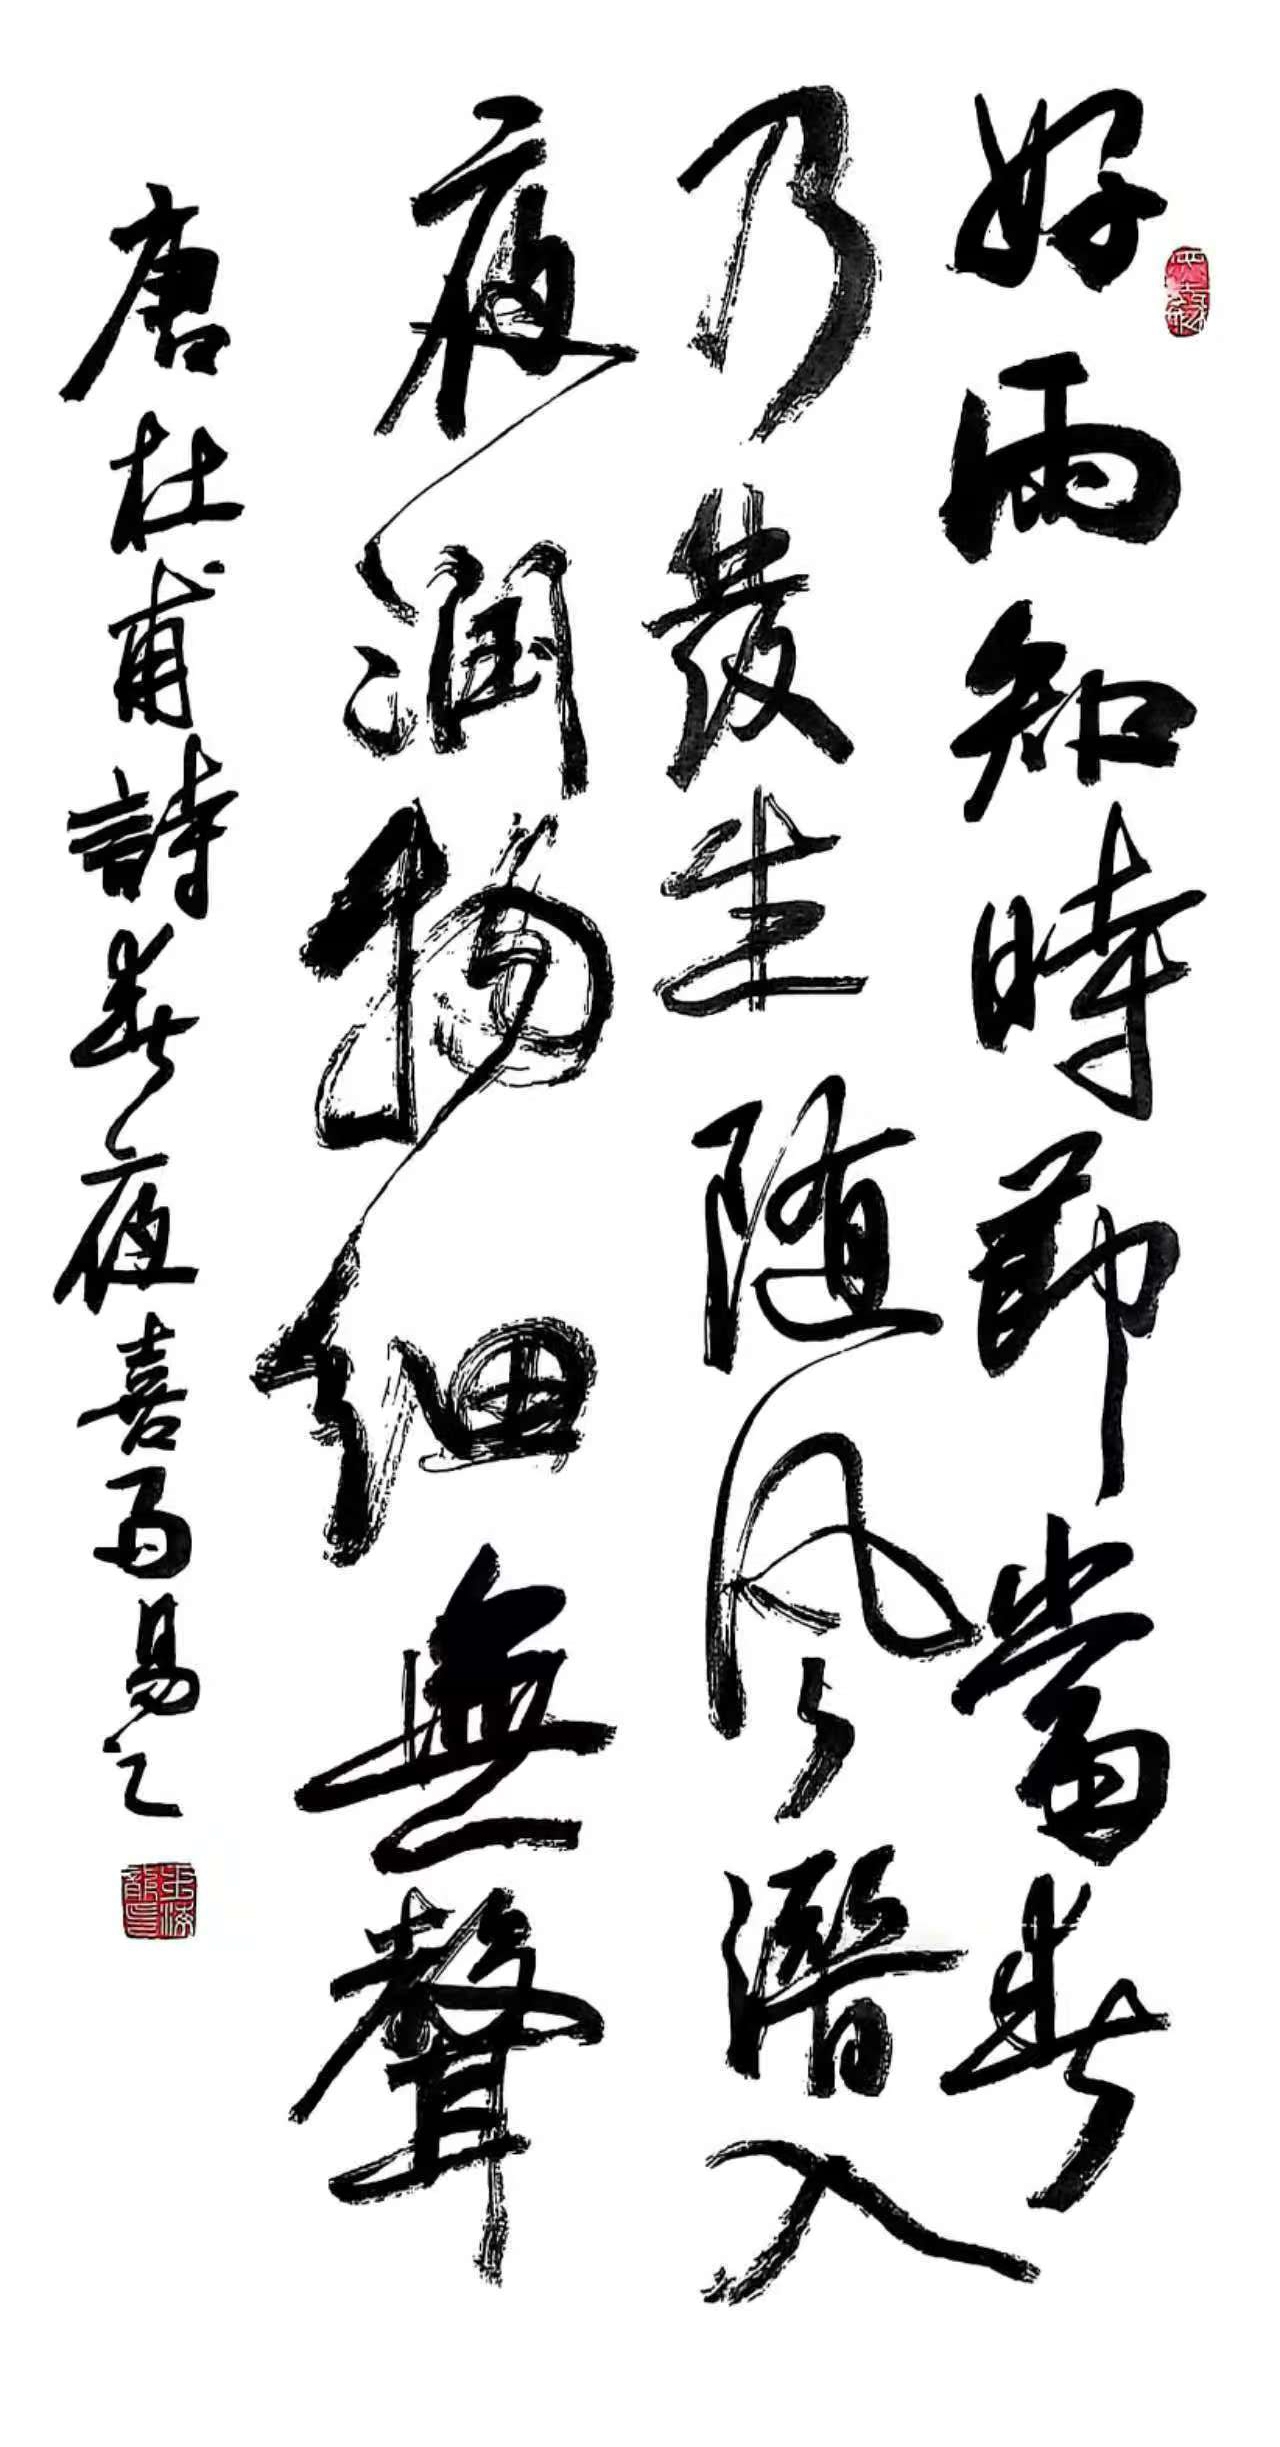 好雨知時節當春
乃發生随风潛入
夜润物细無聲
唐杜甫詩春夜喜雨易之